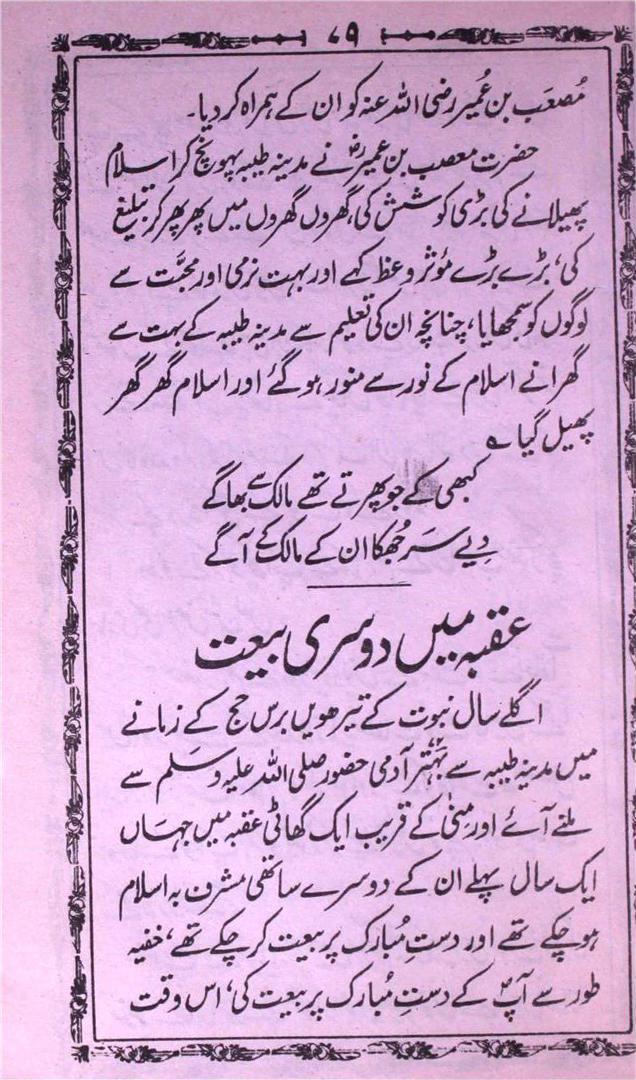 ۷۹
مُصعَب بن عُمیر رضی اللہ عنہ کو ان کے ہمراہ کر دیا۔
حضرت معصب بن عمیرؓ نے مدینہ طیبہ پہونچ کر اسلام
پھیلانے کی بڑی کوشش کی، گھروں گھروں میں پھر پھر کر تبلیغ
کی، بڑے بڑے مؤثر وعظ کہے اور بہت نرمی اور محبّت سے
لوگوں کو سمجھایا، چنانچہ ان کی تعلیم سے مدینہ طیبہ کے بہت سے
گھرانے اسلام کے نور سے منور ہو گئے اور اسلام گھر گھر
پھیل گیا ؎
کبھی کے جو پھرتے تھے مالک سے بھاگے
دیے سَر جُھکا ان کے مالک کے آگے
عقبہ میں دوسری بیعت
اگلے سال نبوت کے تیرھویں برس حج کے زمانے
میں مدینہ طیبہ سے بَہتّر آدمی حضور صلی اللہ علیہ وسلم سے
ملنے آئے اور منیٰ کے قریب ایک گھاٹی عقبہ میں جہاں
ایک سال پہلے ان کے دوسرے ساتھی مشرف بہ اسلام
ہو چکے تھے اور دستِ مُبارک پر بیعت کر چکے تھے، خفیہ
طور سے آپؐ کے دستِ مُبارک پر بیعت کی، اس وقت